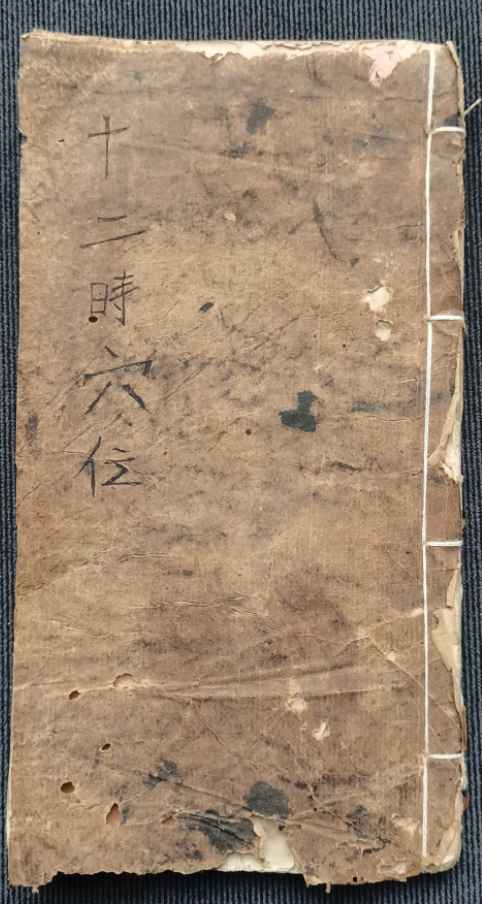 十二時穴位